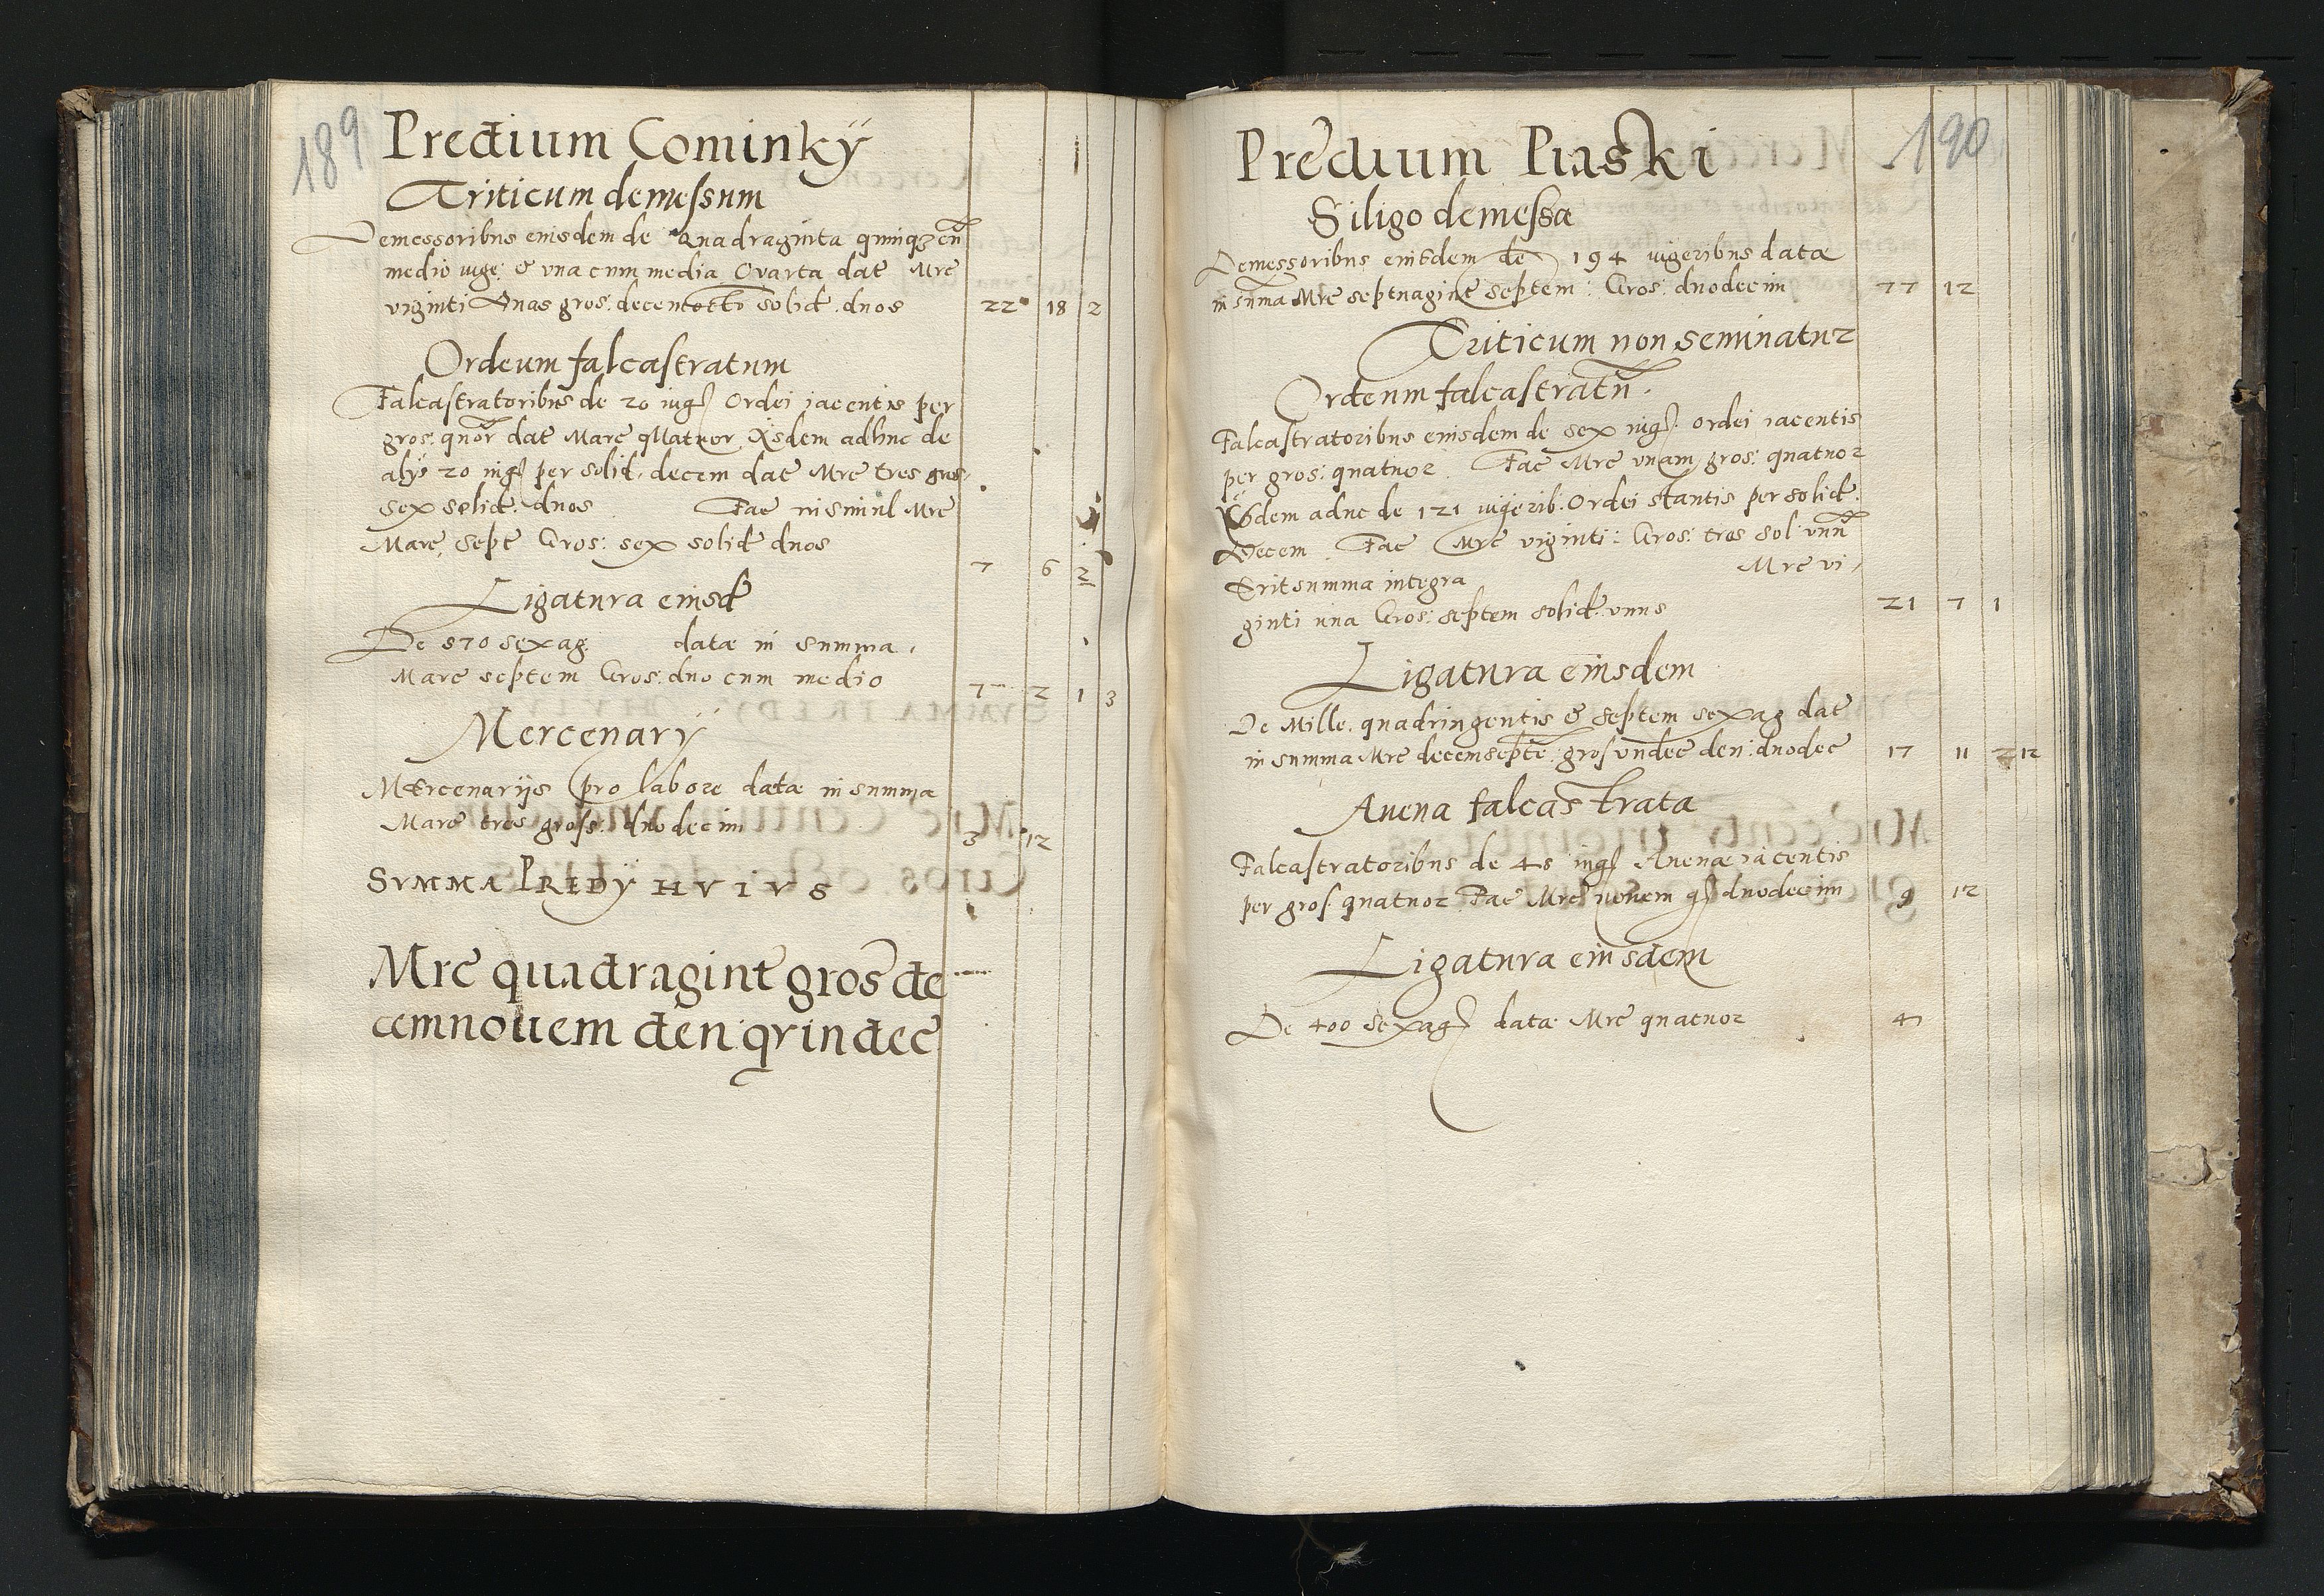 189
Predium Cominkÿ
Triticum demessum
Demessoribus eiusdem de Quadraginta quinqz cũ
medio iuge: & vna cum media Qvarta dat Mrc
viginti Duas gros: decemtocto solid. duos 22 18 2
Ordeum falcastratum
Falcastratoribus de 20 iug Ordei iacentis per
gros: quor dat Marc quatuor. Isdem adhuc de
alÿs 20 iug per solid. decem dat Mrc tres gros.
sex solid. duos Fac in simul Mrc
Marc. Sept Gros: sex solid duos 7 6 2
Ligatura eiusd
De 570 sexag. datæ in summa.
Marc septem Gros: duo cum medio 7 2 1 3
Mercenarÿ
MErcenarijs pro labore datæ in summa
Marc tres gross: duodecim 3 12
SVMMA PREDŸ HVIVS
Mrc quadragint gros de
cemnouem den qvindec
190
Predium Piaski
Siligo demessa
Demessoribus eiusdem de 194 iugeribus datæ
in summa Mrc septuagint septem: Gros: duodecim 77 12
Triticum non seminatur
Ordeum falcastratũ.
Falcastratoribus eiusdem de sex iug. ordei iacentis
per gros: quatuor. Fac Mrc vnam gros: quatuor
Isdem aduc de 121 iugerib. Ordei stantis per solid.
Decem. Fac Mrc viginti: Gros: tres sol vnũ
Erit summa integra Mrc vi,
ginti una Gros: septem solid: vnus 21 7 1
Ligatura eiusdem
De Mille. quadringentis & septem sexag dat
in summa Mrc decemsepte: gros vndec den: duodec 17 11 2 12
Auena falcastrata
Falcastratoribus de 48 iug Auenæ iacentis
per gros. quatuor Fac Mrc nouem g duodecim 9 12
Ligatura eiusdem
De 400 sexag datæ Mrc quatuor 4